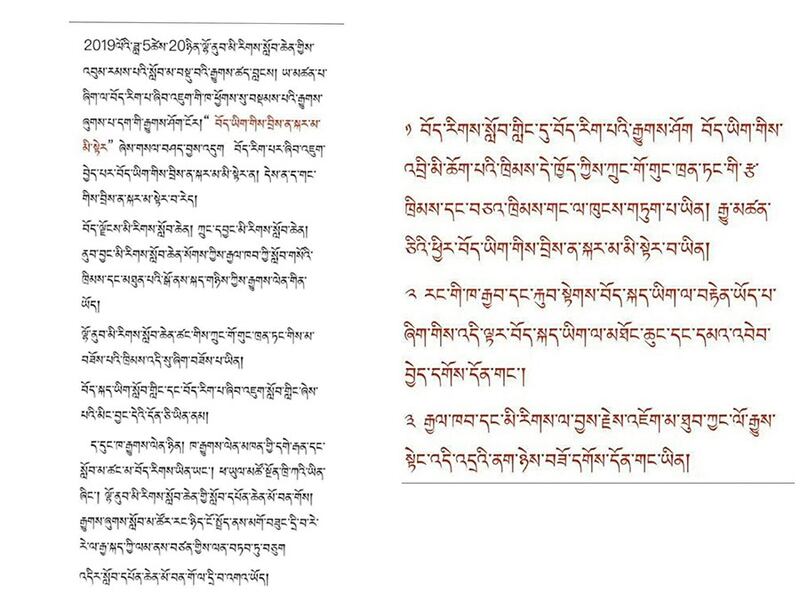 2019ལོའི་ཟླ་5ཚེས་20ཉིན་ལྷོ་ནུབ་མི་རིགས་སློབ་ཆེན་གྱིས་
འབུམ་རམས་པའི་སློབ་མ་བསྡུ་བའི་རྒྱུགས་ཚད་བླངས། ཡ་མཚན་པ་
ཞིག་ལ་བོད་རིག་པ་ཞིབ་འཇུག་གི་ཁ་ཕྱོགས་སུ་བསྡམས་པའི་རྒྱུགས་
ཞུགས་པ་དག་གི་རྒྱུགས་ཤོག་ངོར།“ བོད་ཡིག་གིས་བྲིས་ན་སྐར་མ་
མི་སྟེར” ཞེས་གསལ་བཤད་བྱས་འདུག བོད་རིག་པར་ཞིབ་འཇུག་
བྱེད་པར་བོད་ཡིག་གིས་བྲིས་ན་སྐར་མ་མི་སྟེར་ན། དེས་ན་ད་གང་
གིས་བྲིས་ན་སྐར་མ་སྟེར་བ་རེད།
བོད་ལྗོངས་མི་རིགས་སློབ་ཆེན། ཀྲུང་དབྱང་མི་རིགས་སློབ་ཆེན།
ནུབ་བྱང་མི་རིགས་སློབ་ཆེན་སོགས་ཀྱིས་རྒྱལ་ཁབ་ཀྱི་སློབ་གསོའི་
ཁྲིམས་དང་མཐུན་པའི་སྒོ་ནས་སྐད་གཉིས་ཀྱིས་རྒྱུགས་ལེན་གིན་
ཡོད།
ལྷོ་ནུབ་མི་རིགས་སློབ་ཆེན་ཚང་གིས་ཀྲུང་གོ་གུང་ཁྲན་ཏང་གིས་མ་
བཟོས་པའི་ཁྲིམས་འདི་སུ་ཞིག་བཟོས་པ་ཡིན།
བོད་སྐད་ཡིག་སློབ་གླིང་དང་བོད་རིག་པ་ཞིབ་འཇུག་སློབ་གླིང་ཞེས་
པའི་མིང་བྱང་དེའི་དོན་ཅི་ཡིན་ནམ།
ད་དུང་ཁ་རྒྱུགས་ལེན་ཉིན། ཁ་རྒྱུགས་ལེན་མཁན་གྱི་དགེ་རྒན་དང་
སློབ་མ་ཚང་མ་བོད་རིགས་ཡིན་ཡང་། ཕ་ཡུལ་མཚོ་སྔོན་ཁྲི་ཀའི་ཡིན་
ཞིང་། ལྷོ་ནུབ་མི་རིགས་སློབ་ཆེན་གྱི་སློབ་དཔོན་ཆེན་མོ་བན་གོས།
རྒྱུགས་ཞུགས་སློབ་མ་ཚོར་རང་ཉིད་ངོ་སྤྲོད་ནས་མགོ་བཟུང་དྲི་བ་རེ་
རེ་ལ་རྒྱ་སྐད་ཀྱི་ལམ་ནས་བཙན་གྱིས་ལན་བཏབ་ཏུ་བཅུག
འདིར་སློབ་དཔོན་ཆེན་མོ་བན་གོ་ལ་དྲི་བ་འགའ་ཡོད།
༡ བོད་རིགས་སློབ་གླིང་དུ་བོད་རིག་པའི་རྒྱུགས་ཤོག བོད་ཡིག་གིས་
འབྲི་མི་ཆོག་པའི་ཁྲིམས་དེ་ཁྱོད་ཀྱིས་ཀྲུང་གོ་གུང་ཁྲན་ཏང་གི་རྩ་
ཁྲིམས་དང་བཅའ་ཁྲིམས་གང་ལ་ཁུངས་གཏུག་པ་ཡིན། རྒྱུ་མཚན་
ཅིའི་ཕྱིར་བོད་ཡིག་གིས་བྲིས་ན་སྐར་མ་མི་སྟེར་བ་ཡིན།
༢ རང་གི་ཁ་རྒྱབ་དང་རྐུབ་སྟེགས་བོད་སྐད་ཡིག་ལ་བརྟེན་ཡོད་པ་
ཞིག་གིས་འདི་ལྟར་བོད་སྐད་ཡིག་ལ་མཐོང་ཆུང་དང་དམའ་འབེབ་
བྱེད་དགོས་དོན་གང་།
༣ རྒྱལ་ཁབ་དང་མི་རིགས་ལ་བྱས་རྗེས་འཇོག་མ་ཐུབ་ཀྱང་ལོ་རྒྱུས་
སྟེང་འདི་འདྲའི་ནག་ཉེས་བཟོ་དགོས་དོན་གང་ཡིན།